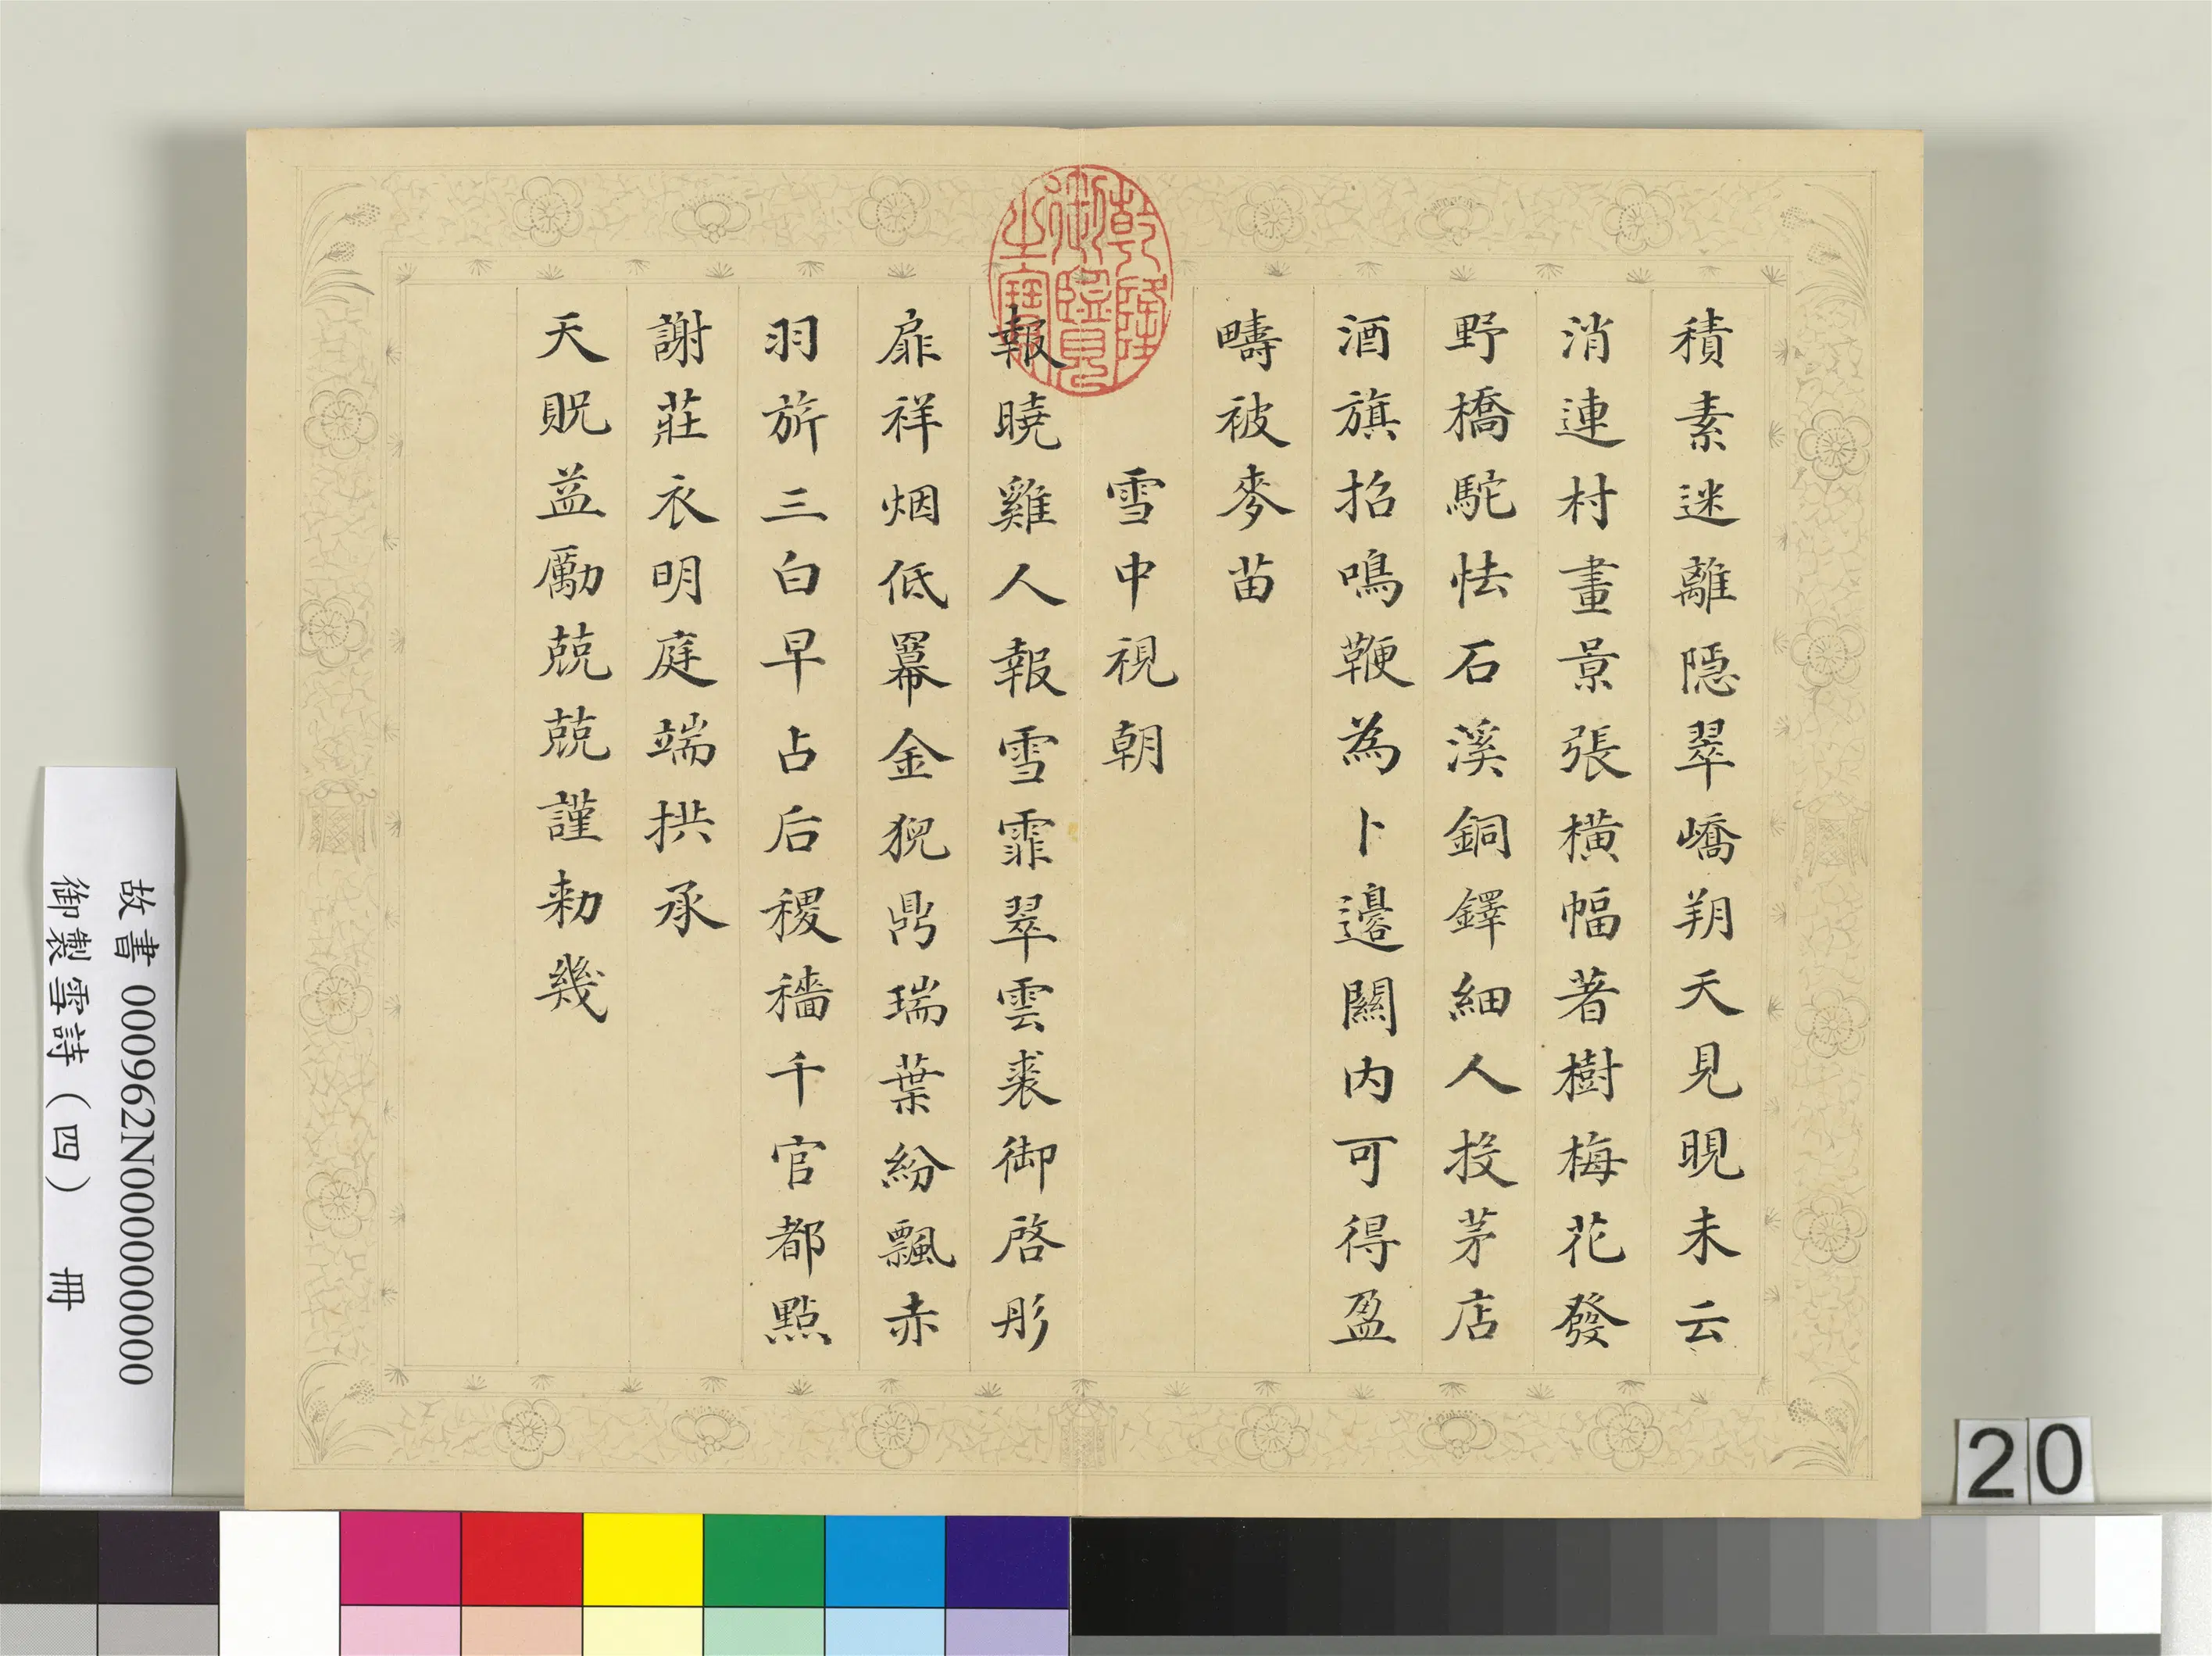 積素迷離隱翠嶠朔天見晛未云
消連村畫景張橫幅著樹梅花發
野橋駝怯石溪銅鐸細人投茅店
酒旗招鳴鞭為卜邊關内可得盈
疇被麥苗
雪中視朝
報曉雞人報雪霏翠雲裘御啓彤
扉祥烟低羃金猊鼎瑞葉紛飄赤
羽旂三白早占后稷穡千官都點
謝莊衣明庭端拱承
天貺益勵兢兢謹勅幾
乾隆御覽之寶
故書 000962N000000000
御製雪詩（四） 冊
20